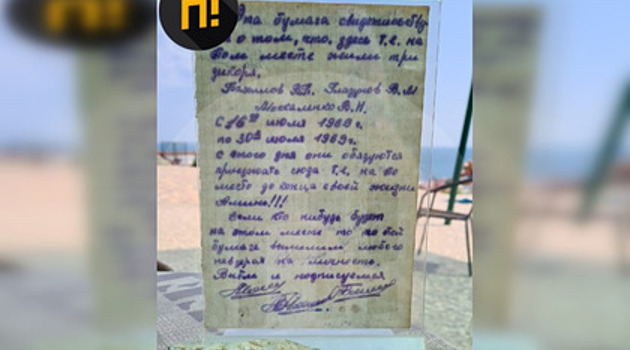 П!
Эта бумага свидетельству
о том, что, здесь т.е. на
этом месте жили три
дикаря.
Глазунов В.М
Москаленко В.Н.
С 16 июля 1969 г.
по 30 июля 1969 г.
с этого дня они обязуются
приезжать сюда т.е. на это
место до конца своей жизни
Аминь!!!
Если кто нибудь будет
на этом месте то по этой
бумаге выгоним любого
невзирая на личность.
В чём и подписуемся